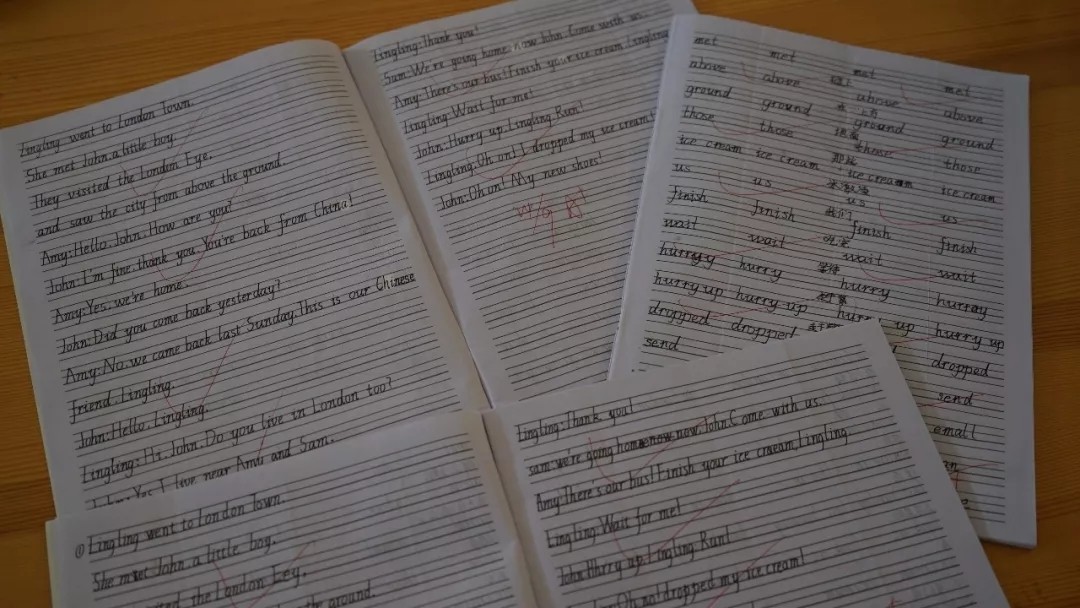 Lingling went to London Town.
She met John, a little boy.
They visited the London Eye.
and saw the city from above the ground.
Amy: Hello, John. How are you?
John: I'm fine, thank you. You're back from China!
Amy: Yes, we're home.
John: Did you come back yesterday?
Amy: No, we came back last Sunday. This is our Chinese
friend, Lingling.
John: Hello, Lingling.
Lingling: Hi, John. Do you live in London too?
Yes, I live near Amy and Sam.
Lingling: Thank you!
Sam: We're going home now John. Come with us.
Amy: There's our bus! Finish your ice cream, Lingling
Lingling: Wait for me!
John: Hurry up, Lingling. Run!
Lingling: Oh on! I dropped my ice cream!
John: Oh on! My new shoes!
met met met met
above above above above
ground ground ground ground
those those those those
ice cream ice cream ice cream ice cream
us us us us
finish finish finish finish
wait wait wait wait
hurryy hurry hurry hurray
hurry up hurry up hurry up hurry up
dropped dropped dropped
send send
email
① Lingling went to London Town.
She met John, a little boy.
the London Eey.
ground.
Lingling: Thank you!
sam: we're going now, now John. Come with us.
Amy: There's our bus! Finish your ice craeam, Lingling
Lingling: Wait for me!
John: Hrry up, Lingling. Run!
Oh no! dropped my ice cream!